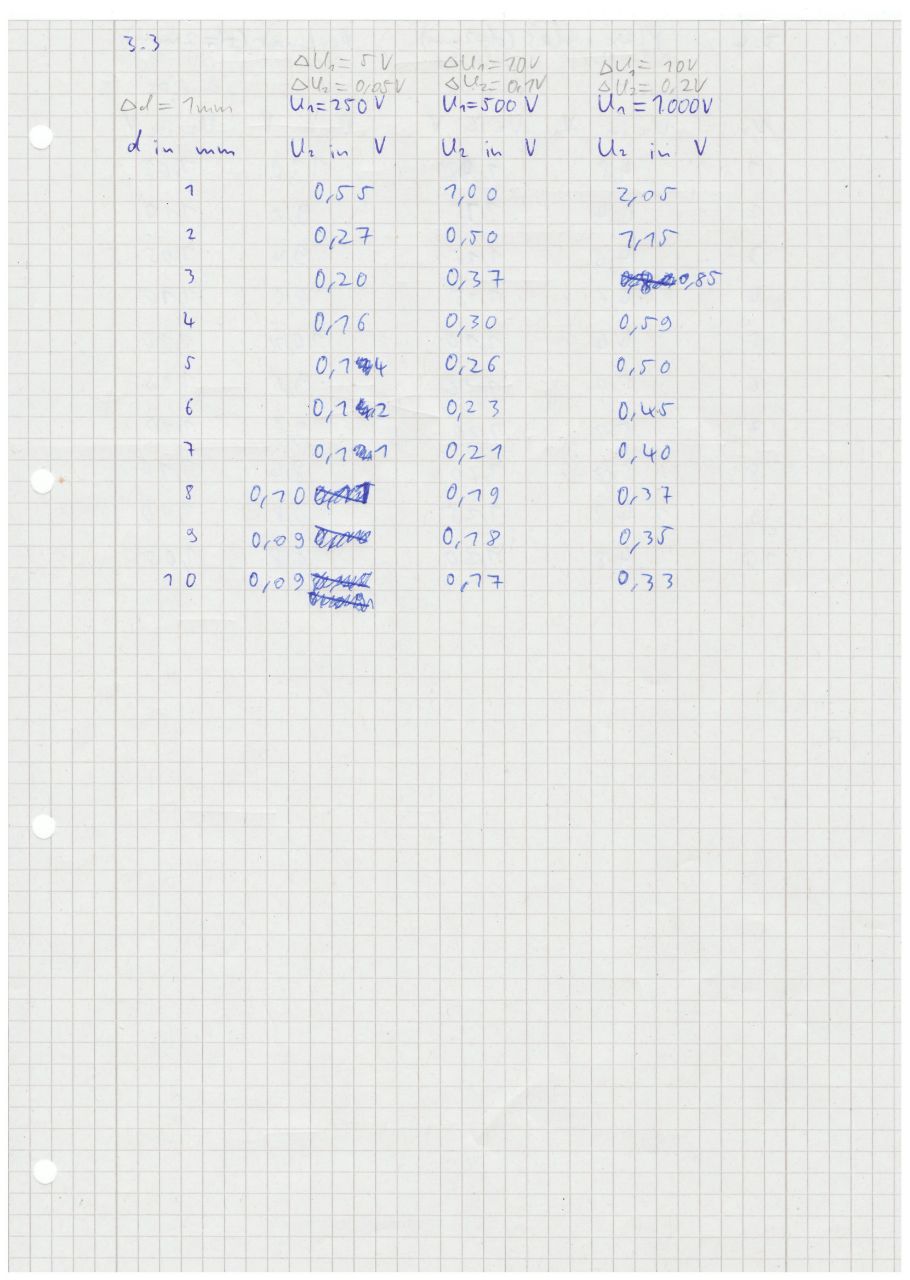 3.3
ΔU₁= 5V ΔU₁=10V ΔU₁= 10V
ΔU₂= 0,05V ΔU₂= 0,1V ΔU₂= 0,2V
Δd = 1mm U₁=250V U₁=500V U₁=1000V
d in mm U₂ in V U₂ in V U₂ in V
1 0,55 1,00 2,05
2 0,27 0,50 1,15
3 0,20 0,37 0,85
4 0,16 0,30 0,59
5 0,14 0,26 0,50
6 0,12 0,23 0,45
7 0,11 0,21 0,40
8 0,10 0,19 0,37
9 0,09 0,18 0,35
10 0,09 0,17 0,33